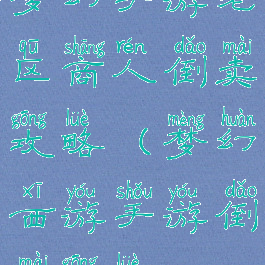 梦幻手游老
qū shāng rén dǎo mài
区商人倒卖
gōng lüè mèng huàn
攻略（梦幻
xī yóu shǒu yóu dǎo
西游手游倒
mài gōng lüè